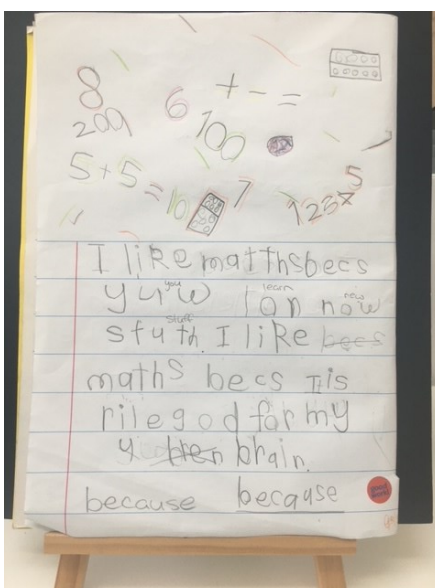 8 6 + - =
200 100
5+5=10 7 123x5
I like matthsbecs
you
yuw lon now
learn new
stuff
stuth. I like becs
maths becs It is
rile god for my
y bren brain.
because because